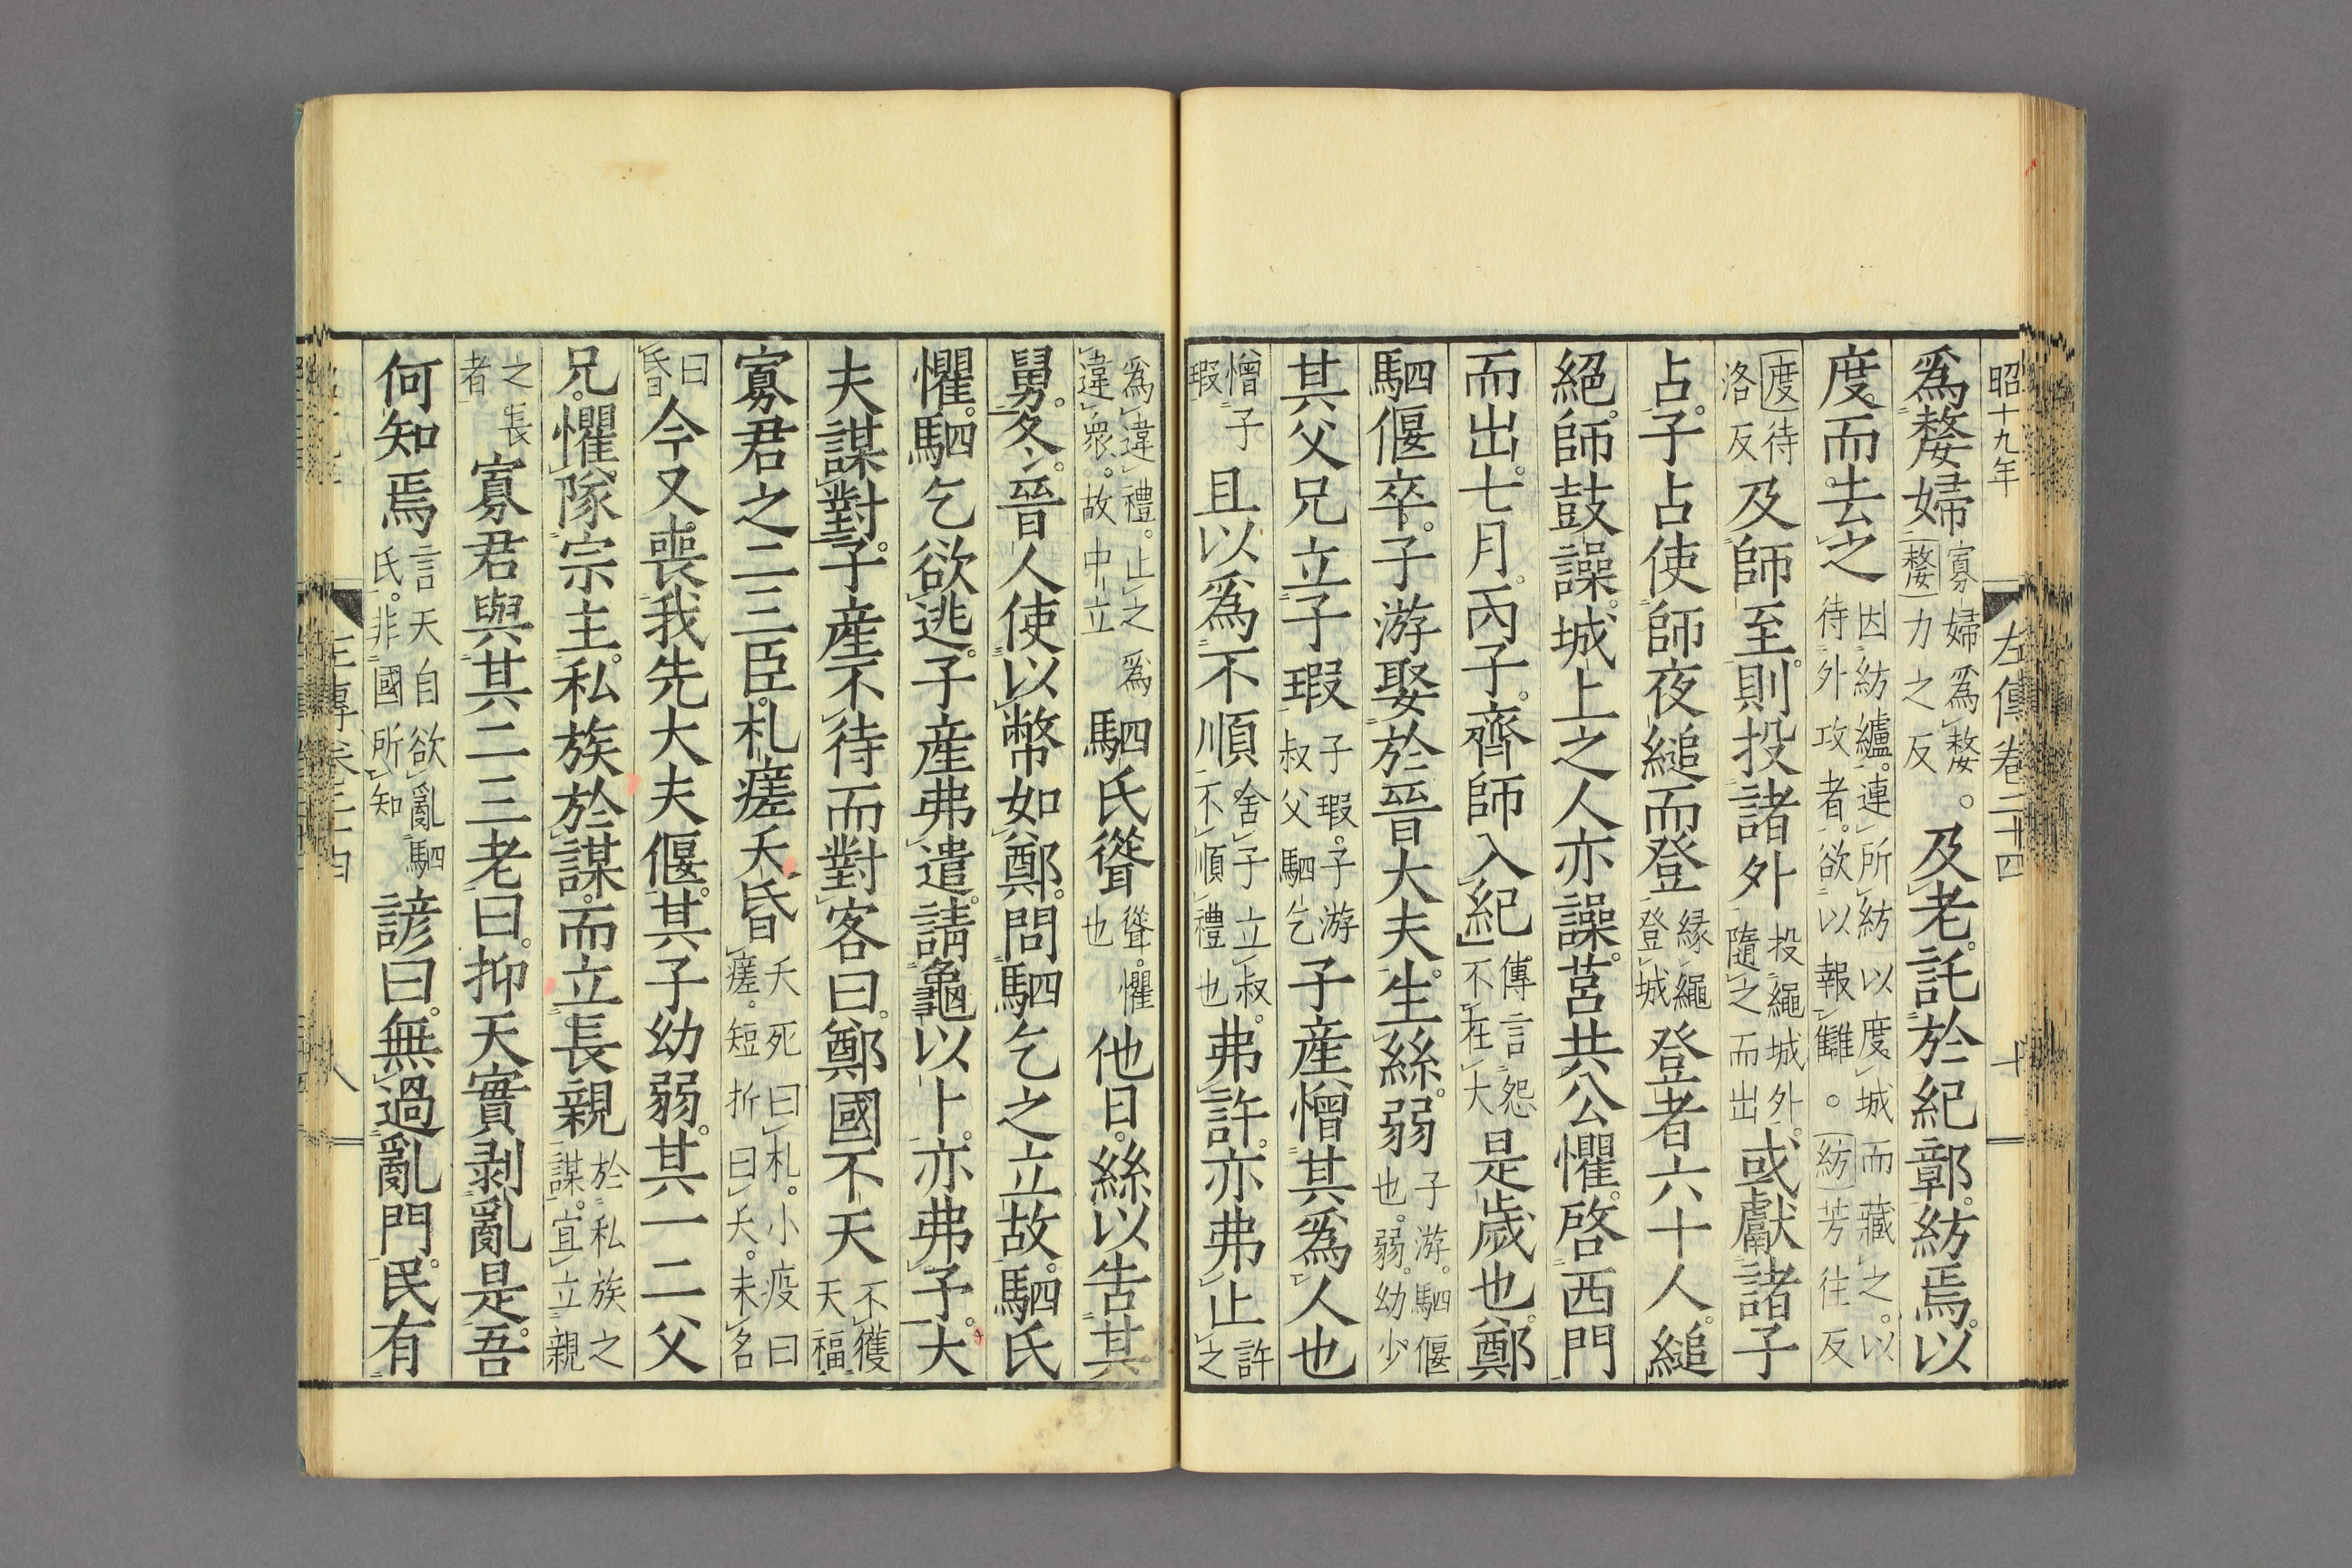 昭十九年
左傳卷二十四
十
爲嫠婦寡婦爲嫠。嫠力之反。及老。託於紀鄣。紡焉。以
度。而去之因紡纑。連所紡以度城而藏之。以待外攻者。欲以報讎。紡芳往反
度待洛反及師至。則投諸外投繩城外。隨之而出或獻諸子
占。子占使師夜縋而登緣繩登城登者六十人。縋
絕。師鼓譟。城上之人亦譟。莒共公懼。啓西門
而出。七月。丙子。齊師入紀傳言怨不在大是歲也。鄭
駟偃卒。子游娶於晉大夫。生絲。弱子游。駟偃也。弱。幼少
其父兄立子瑕子瑕。子游叔父駟乞子産憎其爲人也
憎子瑕且以爲不順舍子立叔。不順禮也弗許。亦弗止許之
爲違禮。止之爲違衆。故中立駟氏聳聳。懼也他日。絲以告其
舅。冬。晉人使以幣如鄭。問駟乞之立故。駟氏
懼。駟乞欲逃。子産弗遣。請龜以卜。亦弗予。大
夫謀對。子産不待而對客曰。鄭國不天不獲天福
寡君之二三臣。札瘥夭昏夭死曰札。小疫曰瘥。短折曰夭。未名
曰昏今又喪我先大夫偃。其子幼弱。其一二父
兄。懼隊宗主。私族於謀。而立長親於私族之謀。宜立親
之長者寡君與其二三老曰。抑天實剥亂是。吾
何知焉言天自欲亂駟氏。非國所知諺曰。無過亂門。民有